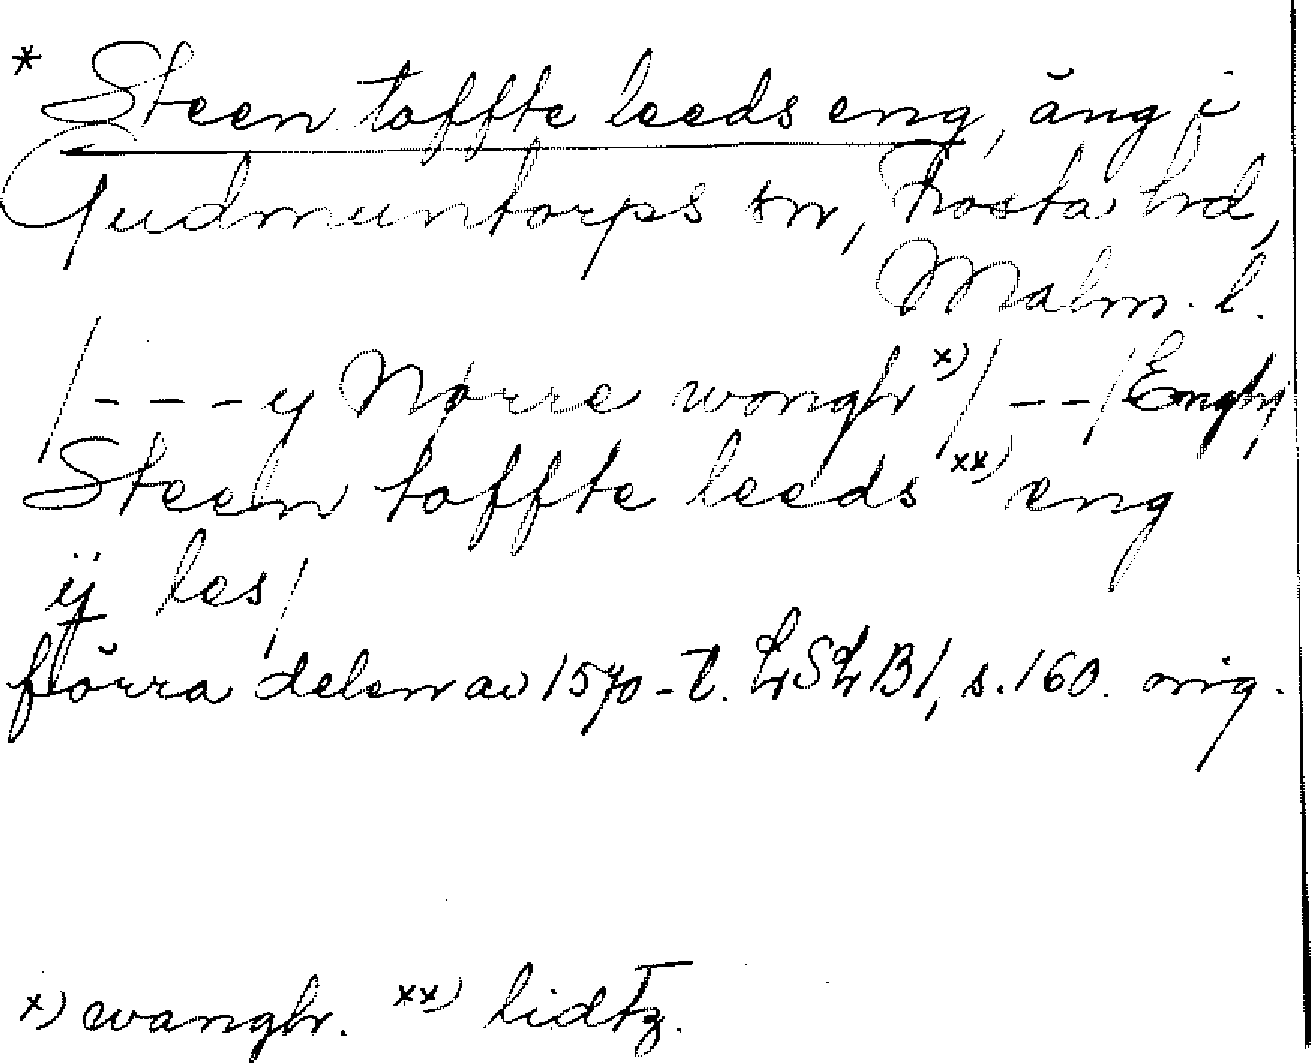 * Steen toffte leeds eng, äng i
Gudmuntorps sn, Frosta hd,
Malm. l.
/---y Nørre wongh x)/--/Engh,
Steen toffte leeds xx) eng
ij les/
förra delen av 1570-t. LSLB1, s. 160. orig.
x) wangh. xx) lidtz.